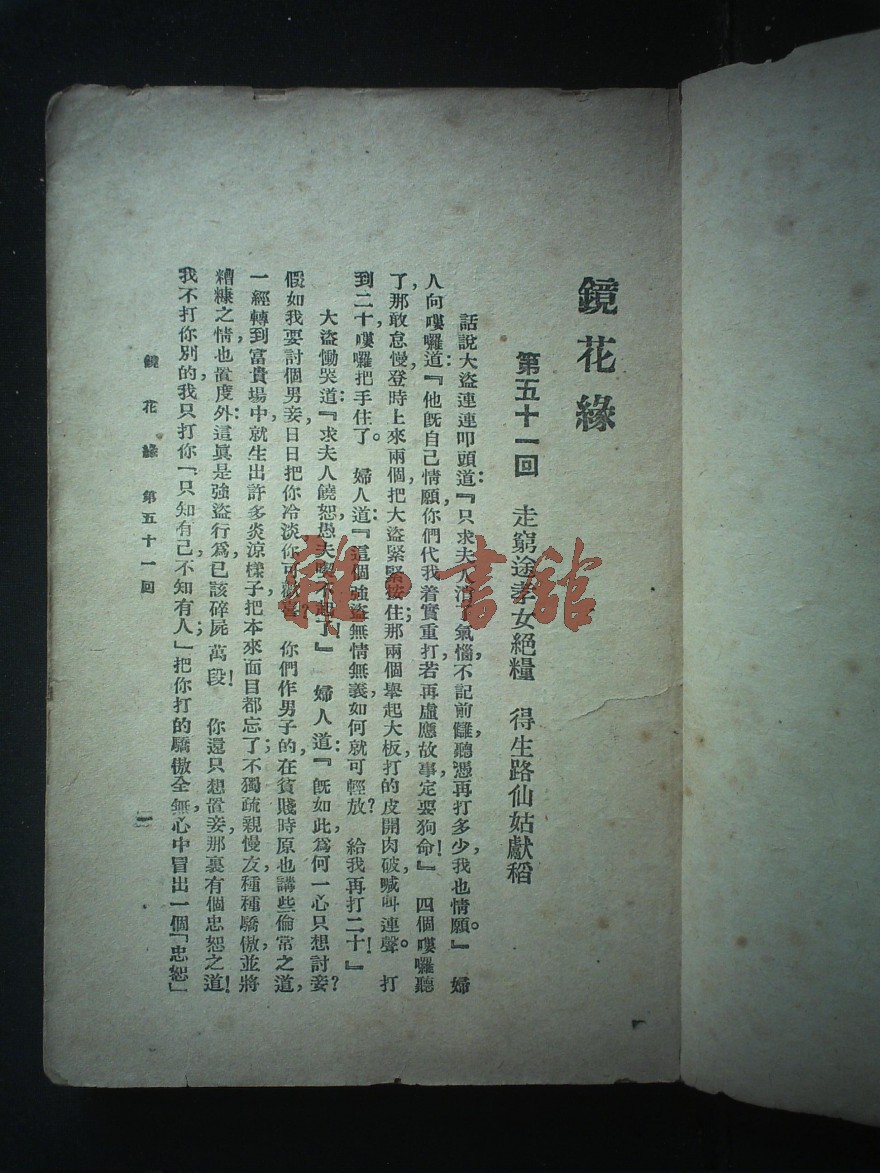 鏡花緣
第五十一回　走窮途孝女絕糧　得生路仙姑獻稻
話說大盜連連叩頭道：『只求夫人消了氣惱，不記前讎，聽憑再打多少，我也情願。』　婦
人向嘍囉道：『他既自己情願，你們代我着實重打，若再虛應故事，定要狗命！』　四個嘍囉聽
了，那敢怠慢，登時上來兩個，把大盜緊緊按住，那兩個舉起大板，打的皮開肉破，喊叫連聲。　打
到二十，嘍囉把手住了。　婦人道：『這個強盜無情無義，如何就可輕放？　給我再打二十！』
大盜慟哭道：『求夫人饒恕，愚夫喫不起了！』　婦人道：『既如此，爲何一心只想討妾？
假如我要討個男妾，日日把你冷淡，你可歡喜？　你們作男子的，在貧賤時原也講些倫常之道，
一經轉到富貴場中，就生出許多炎涼樣子，把本來面目都忘了；不獨疏親慢友，種種驕傲，並將
糟糠之情也置度外：這眞是強盜行爲，已該碎屍萬段！　你還只想置妾，那裏有個忠恕之道！
我不打你別的，我只打你「只知有己，不知有人」；把你打的驕傲全無，心中冒出一個「忠恕」
鏡花緣　第五十一回
一
雜·書館